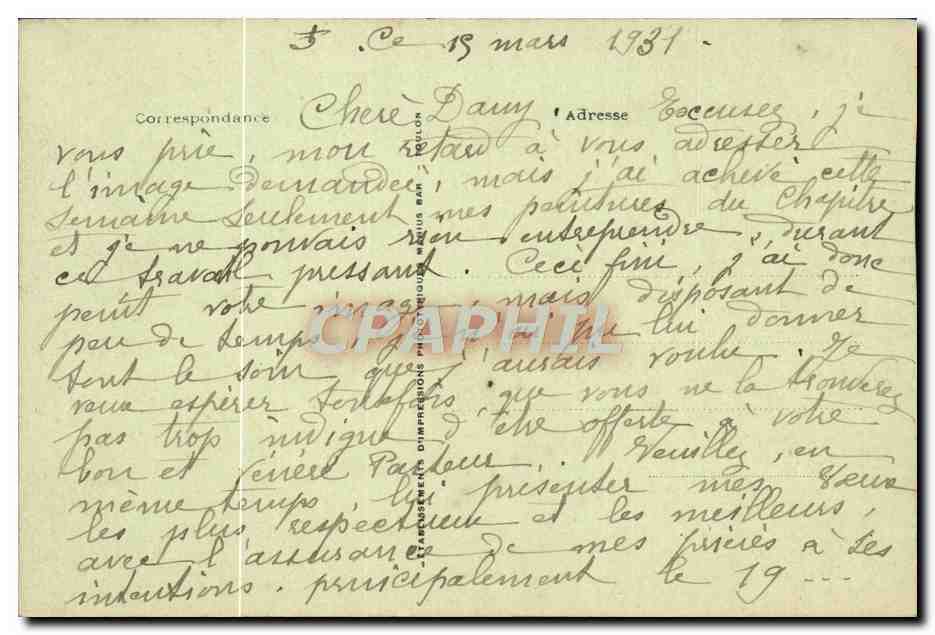 Ce 15 mars 1931.
Correspondance Chère Dany, Adresse Excusez, je
vous prie, mon retard à vous adresser
l'image demandée, mais j'ai achevé cette
semaine seulement mes peintures du Chapitre
et je ne pouvais rien entreprendre, durant
ce travail pressant. Ceci fini, j'ai donc
peint votre image, mais disposant de
peu de temps, je n'ai pu lui donner
tout le soin que j'aurais voulu. Je
veux espérer toutefois, que vous ne la trouverez
pas trop indigne d'être offerte à votre
bon et Vénéré Pasteur. Veuillez, en
même temps, lui présenter mes vœux
les plus respectueux et les meilleurs,
avec l'assurance de mes prières à ses
intentions, principalement le 19 ...
ETABLISSEMENTS D'IMPRESSIONS PHOTOTYPIQUES MARIUS BAR TOULON
CPAPHIL